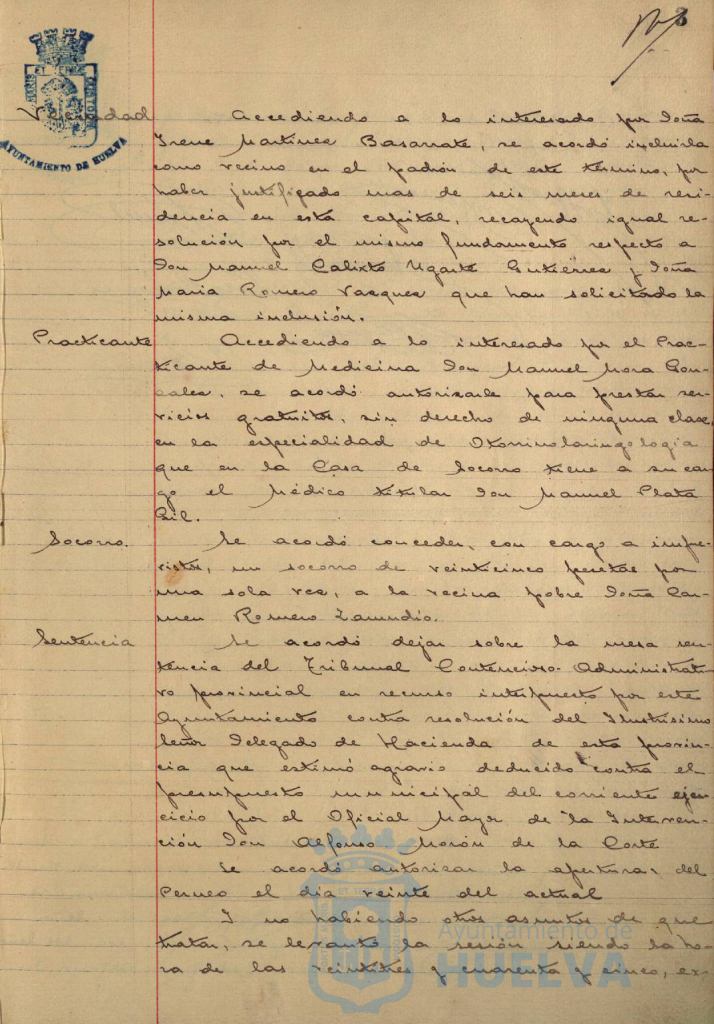 8
AYUNTAMIENTO DE HUELVA
Vecindad
Accediendo a lo interesado por Doña
Irene Martinez Basarrate, se acordó incluirla
como vecino en el padrón de este término, por
haber justificado mas de seis meses de resi-
dencia en esta capital, recayendo igual re-
solución por el mismo fundamento respecto a
Don Manuel Calixto Ugarte Gutiérrez y Doña
Maria Romero Vazquez que han solicitado la
misma inclusión.
Practicante
Accediendo a lo interesado por el Prac-
ticante de Medicina Don Manuel Mora Gon-
zalez, se acordó autorizarle para prestar ser-
vicios gratuitos, sin derecho de ninguna clase,
en la especialidad de Otorrinolaringologia
que en la Casa de Socorro tiene a su car-
go el Médico titular Don Manuel Plata
Gil.
Socorro.
Se acordó conceder, con cargo a impre-
vistos, un socorro de veinticinco pesetas por
una sola vez, a la vecina pobre Doña Car-
men Romero Zamudio.
Sentencia
Se acordó dejar sobre la mesa sen-
tencia del Tribunal Contencioso-Administrati-
vo provincial en recurso interpuesto por este
Ayuntamiento contra resolución del Ilustrisimo
Señor Delegado de Hacienda de esta provin-
cia que estimó agravio deducido contra el
presupuesto municipal del corriente ejer-
cicio por el Oficial Mayor de la Interven-
ción Don Alfonso Morón de la Corte
Se acordó autorizar la apertura del
Perneo el dia veinte del actual
I no habiendo otros asuntos de que
tratar, se levantó la sesión siendo la ho-
ra de las veintitrés y cuarenta y cinco, ex-
Ayuntamiento de
HUELVA